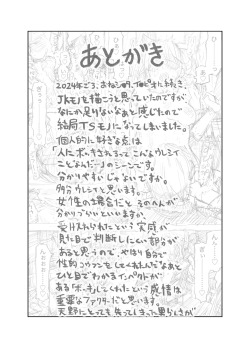 あとがき
2024年ごろ、おねショタ、イロピオに続き、
JKモノを描こうと思っていたのですが
なにか足りないなぁと感じたので
結局TSモノになってしまいました。
個人的に好きな点は
「人にボッキされるってこんなウレシイ
ことじょんだ…」のシーンです。
分かりやすいじゃないですか。
多分ウレシイと思います。
女性の場合だと そのへんが
分かりづらいといいますか、
受け入れられたという実感が
見た目で判断しにくい部分が
あると思うので、やはり自分で
性的コウフンをしてくれたんだなぁと
ひと目でわかるインパクトが
ある「ボッキしてくれた」という感情は
重要なファクターだと思います。
天野にとっても失ってしまった男らしさが